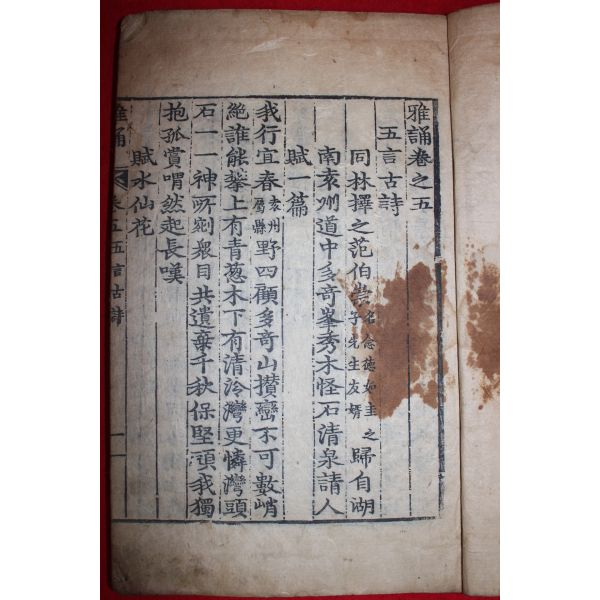 雅誦卷之五
五言古詩
同林擇之范伯崇名念德如圭之子先生友婿歸自湖
南袁州道中多奇峯秀木怪石清泉請人
賦一篇
我行宜春袁州屬縣野四顧多奇山攅巒不可數峭
絶誰能攀上有青葱木下有清泠灣更憐灣頭
石一一神所剜衆目共遺棄千秋保堅頑我獨
抱孤賞喟然起長嘆
賦水仙花
雅誦 卷五五言古詩 一